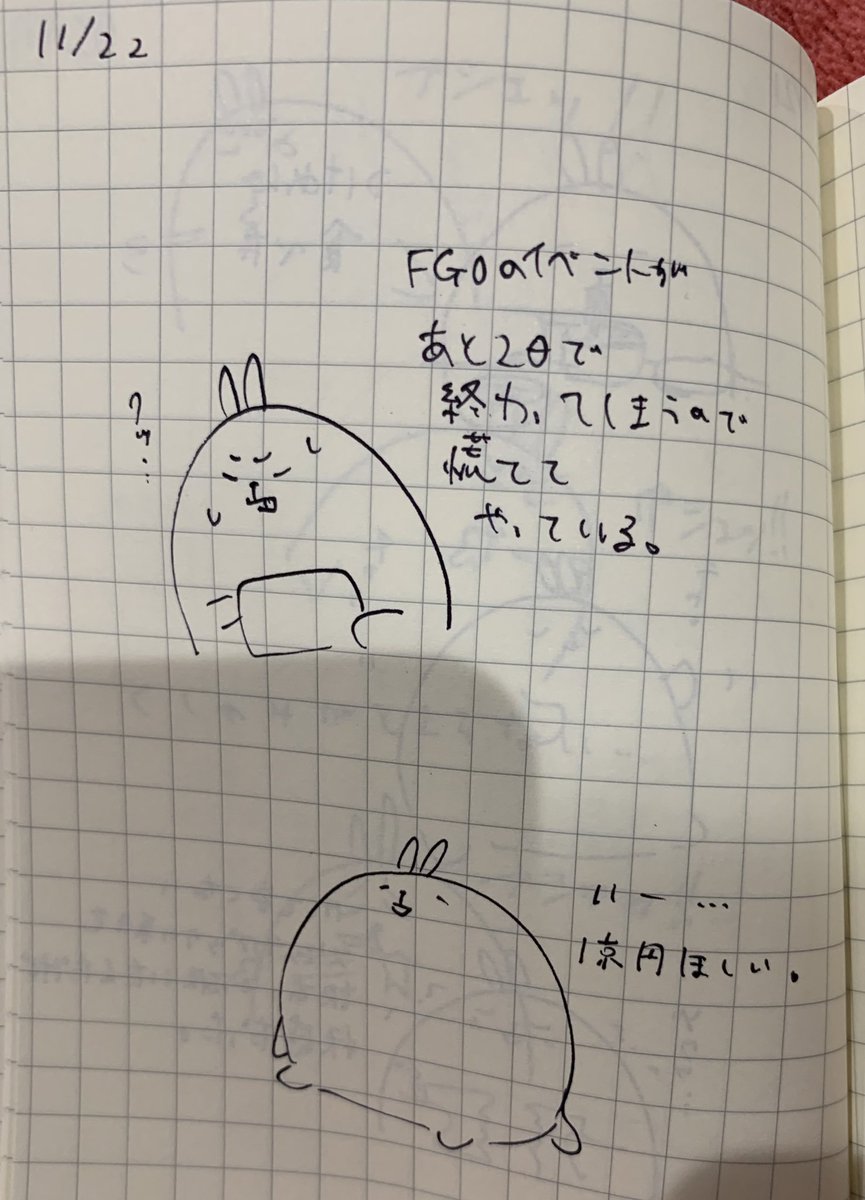 11/22
FGOのイベントが
あと2日で
終わってしまうので
慌てて
やっている。
1京円ほしい。